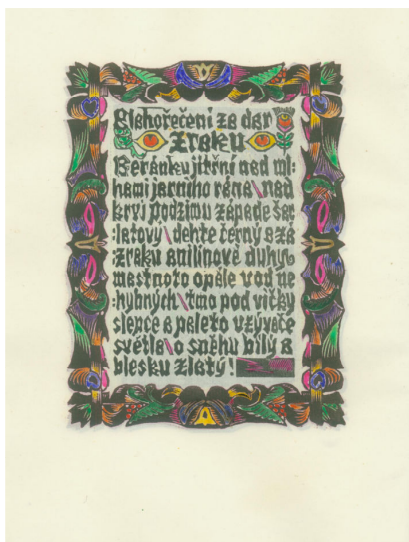 Blahořečení za dar
zraku
Beránku jitřní nad ml:
hami jarního rána \ nad
krví podzimu západe šar
:latový \ dehte černý a zá
:zraku anilinové duhy
mastnoto opálů vod ne
:hybných \ tmo pod víčky
slepce a paleto vzývače
světla \ o sněhu bílý a
blesku zlatý!